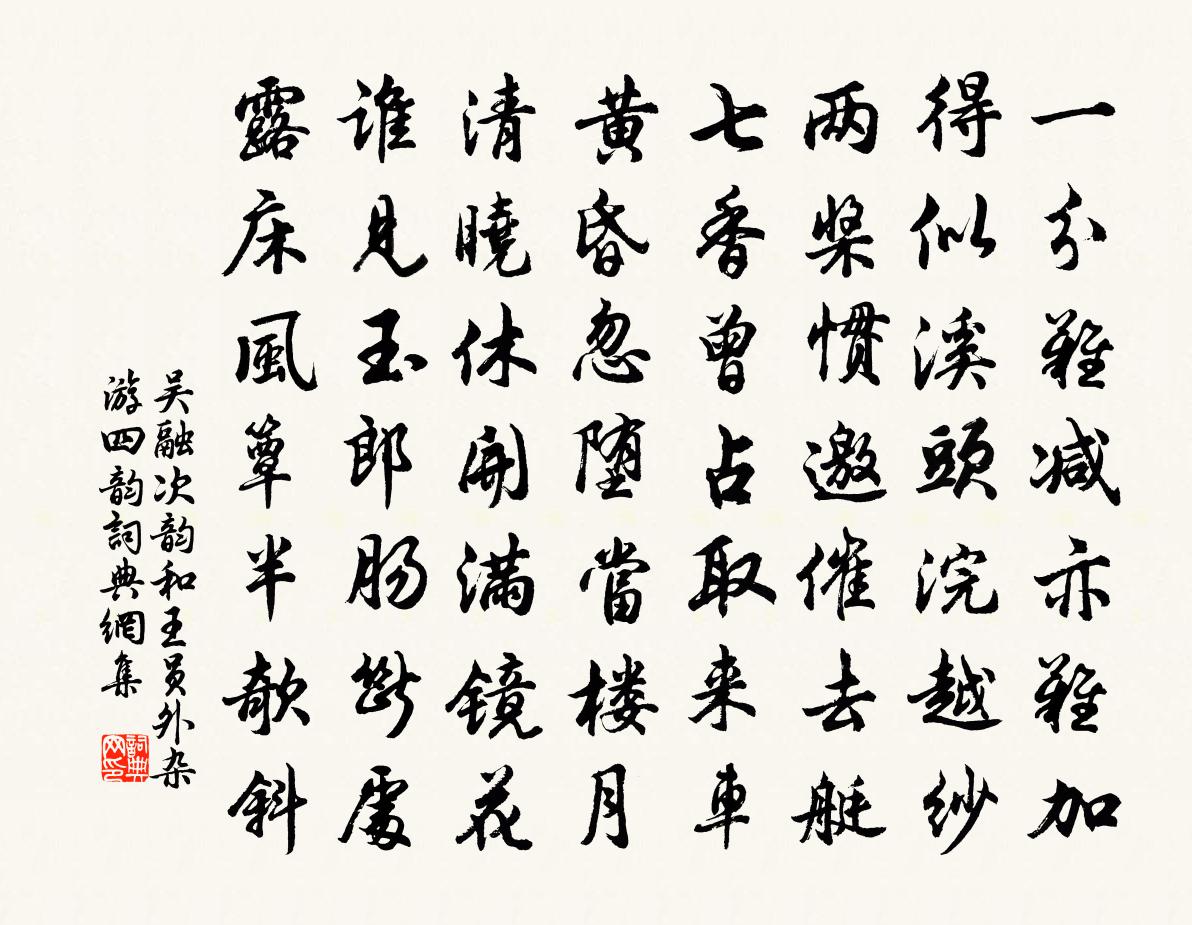 一分難减亦難加
得似溪頭浣越紗
两槳慣邀催去艇
七香曾占取来車
黄昏忽堕當楼月
清曉休開滿镜花
谁見玉郎肠斷處
露床風簟半欹斜
吴融次韵和王员外杂
游四韵詞典網集
詞典
网印